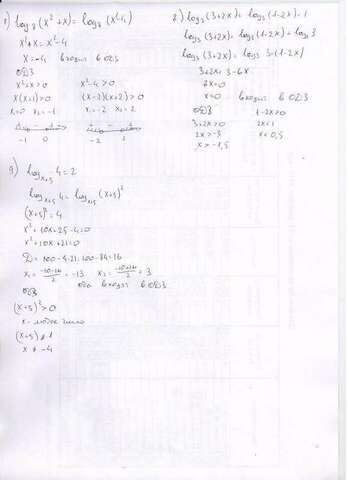 1) log₈(x²+x) = log₈(x²-4)
x²+x = x²-4
x = -4 входит в ОДЗ
ОДЗ
x²+x>0
x²-4>0
x(x+1)>0
(x-2)(x+2)>0
x₁=0 x₂=-1
x₁=-2 x₂=2
-1 0
-2
2) log₃(3+2x) = log₃(1-2x)+1
log₃(3+2x) = log₃(1-2x)+log₃3
log₃(3+2x) = log₃ 3·(1-2x)
3+2x = 3-6x
x=0 входит в ОДЗ
ОДЗ
1-2x>0
3+2x>0
2x>-3
x>-1,5
3) log x+5 4=2
log x+5 4 = log x+5 (x+5)²
(x+5)²=4
x²+10x+25-4=0
x²+10x+21=0
D=100-4·21=100-84=16
x₁ = -10-16/2 = -13 x₂ = -10+16/2 = 3
оба входят в ОДЗ
ОДЗ
(x+5)²>0
x - любое число
(x+5)≠1
x≠-4